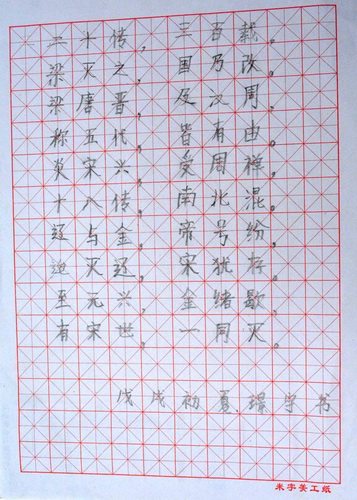 二十传，三百载。
梁灭之，国乃改。
梁唐晋，及汉周。
称五代，皆有由。
炎宋兴，受周禅。
十八传，南北混。
辽与金，帝号纷。
迨灭辽，宋犹存。
至元兴，金绪歇。
有宋世，一同灭。
戊戌初夏 书
米字美工纸